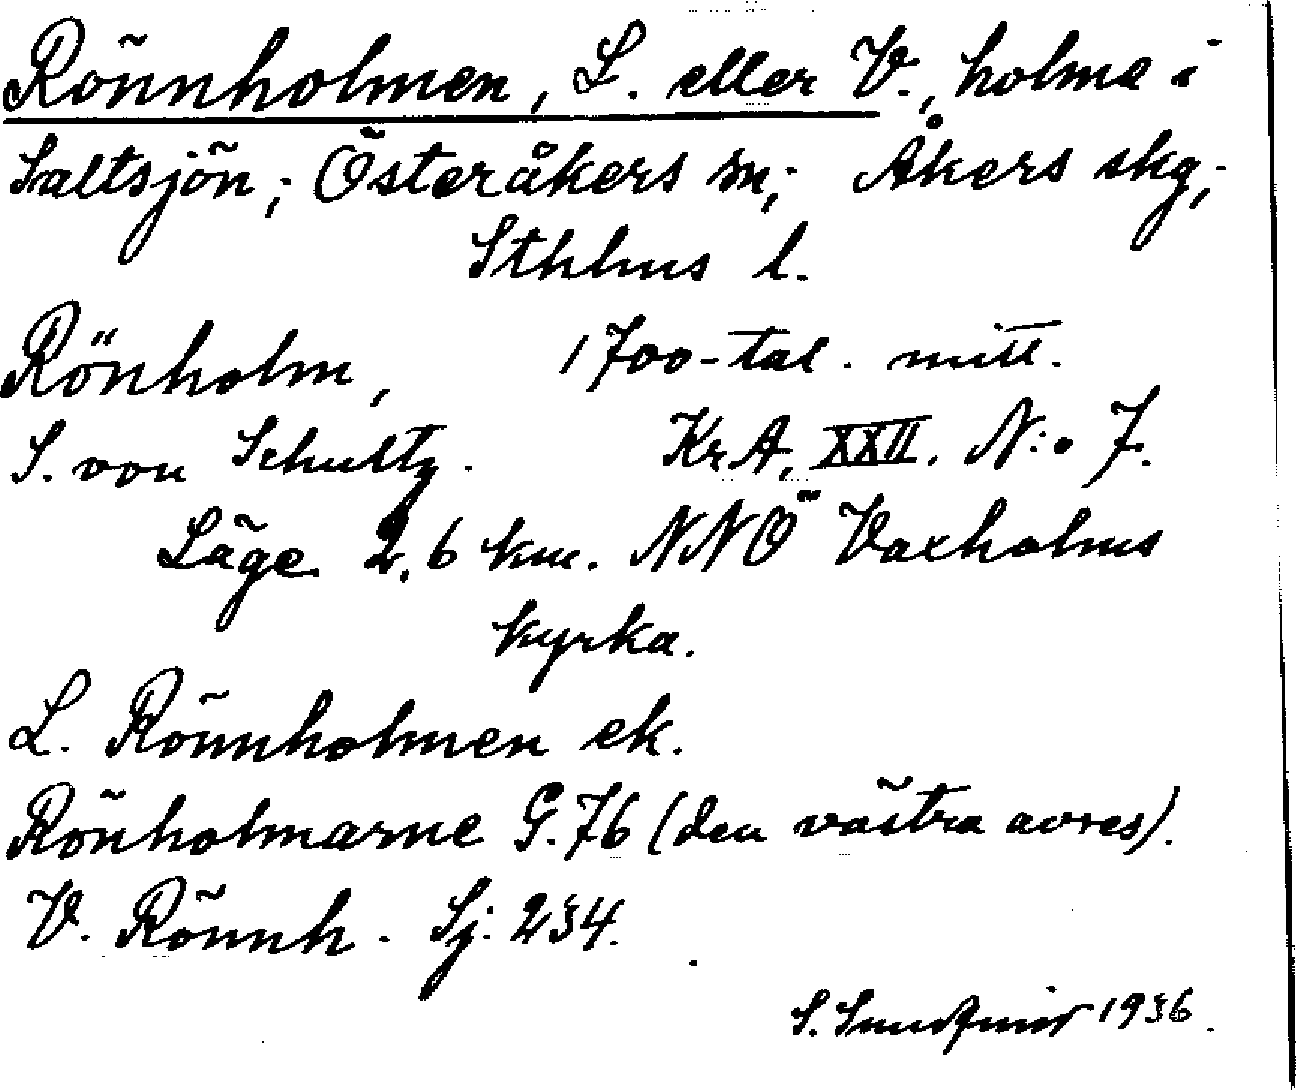 Rönnholmen, L. eller V., holme i
Saltsjön; Österåkers sn; Åkers skg;
Sthlms l.
Rönholm, 1700-tal. mitt.
S. von Schultz. KrA, XXII. N:o 7.
Läge 2,6 km. NNÖ Vaxholms
kyrka.
L. Rönnholmen ek.
Rönholmarne G.76 (den västra avses).
V. Rönnh. Sj. 234.
S. 1936.